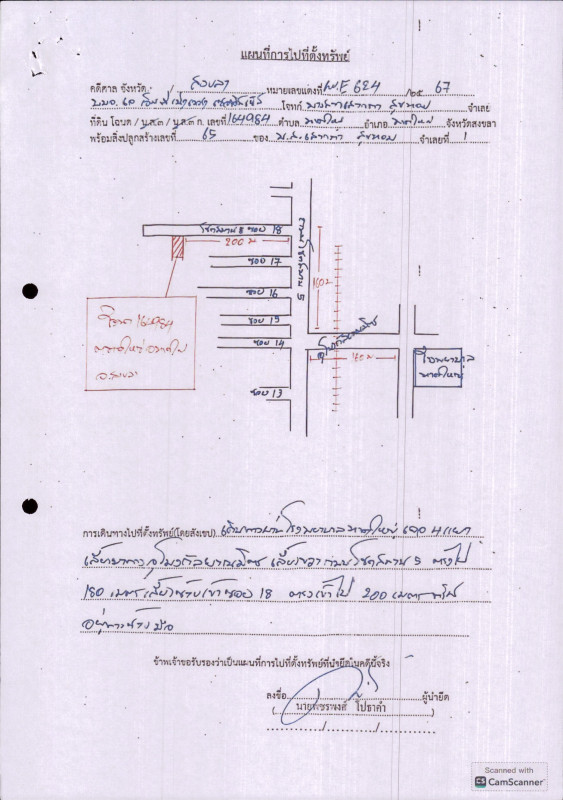 แผนที่การไปที่ตั้งทรัพย์
คดีศาล จังหวัด สงขลา หมายเลขแดงที่ ผบE624 /25 67
โจทก์ จำเลย
ที่ดิน โฉนด / น.ส.๓ / น.ส.๓ ก. เลขที่ 164984 ตำบล หาดใหญ่ อำเภอ หาดใหญ่ จังหวัดสงขลา
พร้อมสิ่งปลูกสร้างเลขที่ 65 ของ จำเลยที่ 1
โชคสมาน 5 ซอย 18
200 ม
ถนนโชคสมาน 5
ซอย 17
160 ม
ซอย 16
ซอย 15
ซอย 14
ซอย 13
โฉนด 164984
ต.หาดใหญ่ อ.หาดใหญ่
จ.สงขลา
180 ม
โรงพยาบาล
หาดใหญ่
การเดินทางไปที่ตั้งทรัพย์(โดยสังเขป) เดินทางผ่านโรงพยาบาลหาดใหญ่ เจอ 4 แยก
เลี้ยวขวา ถนนโชคสมาน 5 ตรงไป
180 เมตร เลี้ยวซ้ายเข้าซอย 18 ตรงเข้าไป 200 เมตร
อยู่ทางซ้ายมือ
ข้าพเจ้าขอรับรองว่าเป็นแผนที่การไปที่ตั้งทรัพย์ที่นำยึดในคดีนี้จริง
ลงชื่อ ผู้นำยึด
( นายพชรพงศ์ โปธาคำ )
/ /
Scanned with
CS CamScanner